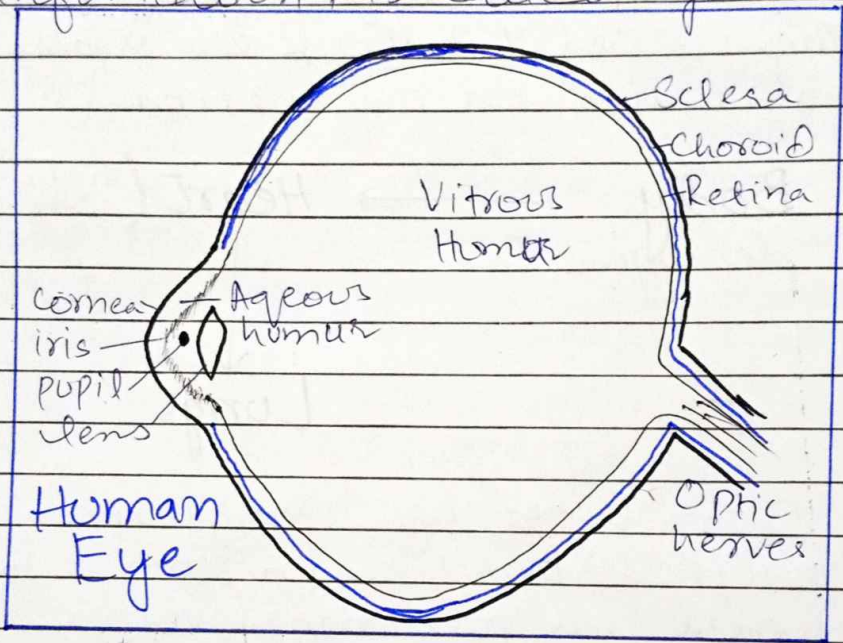 Sclera
Choroid
Retina
Vitrous
Humur
Cornea
Aqeous
humur
iris
pupil
lens
Human
Eye
Optic
nerves